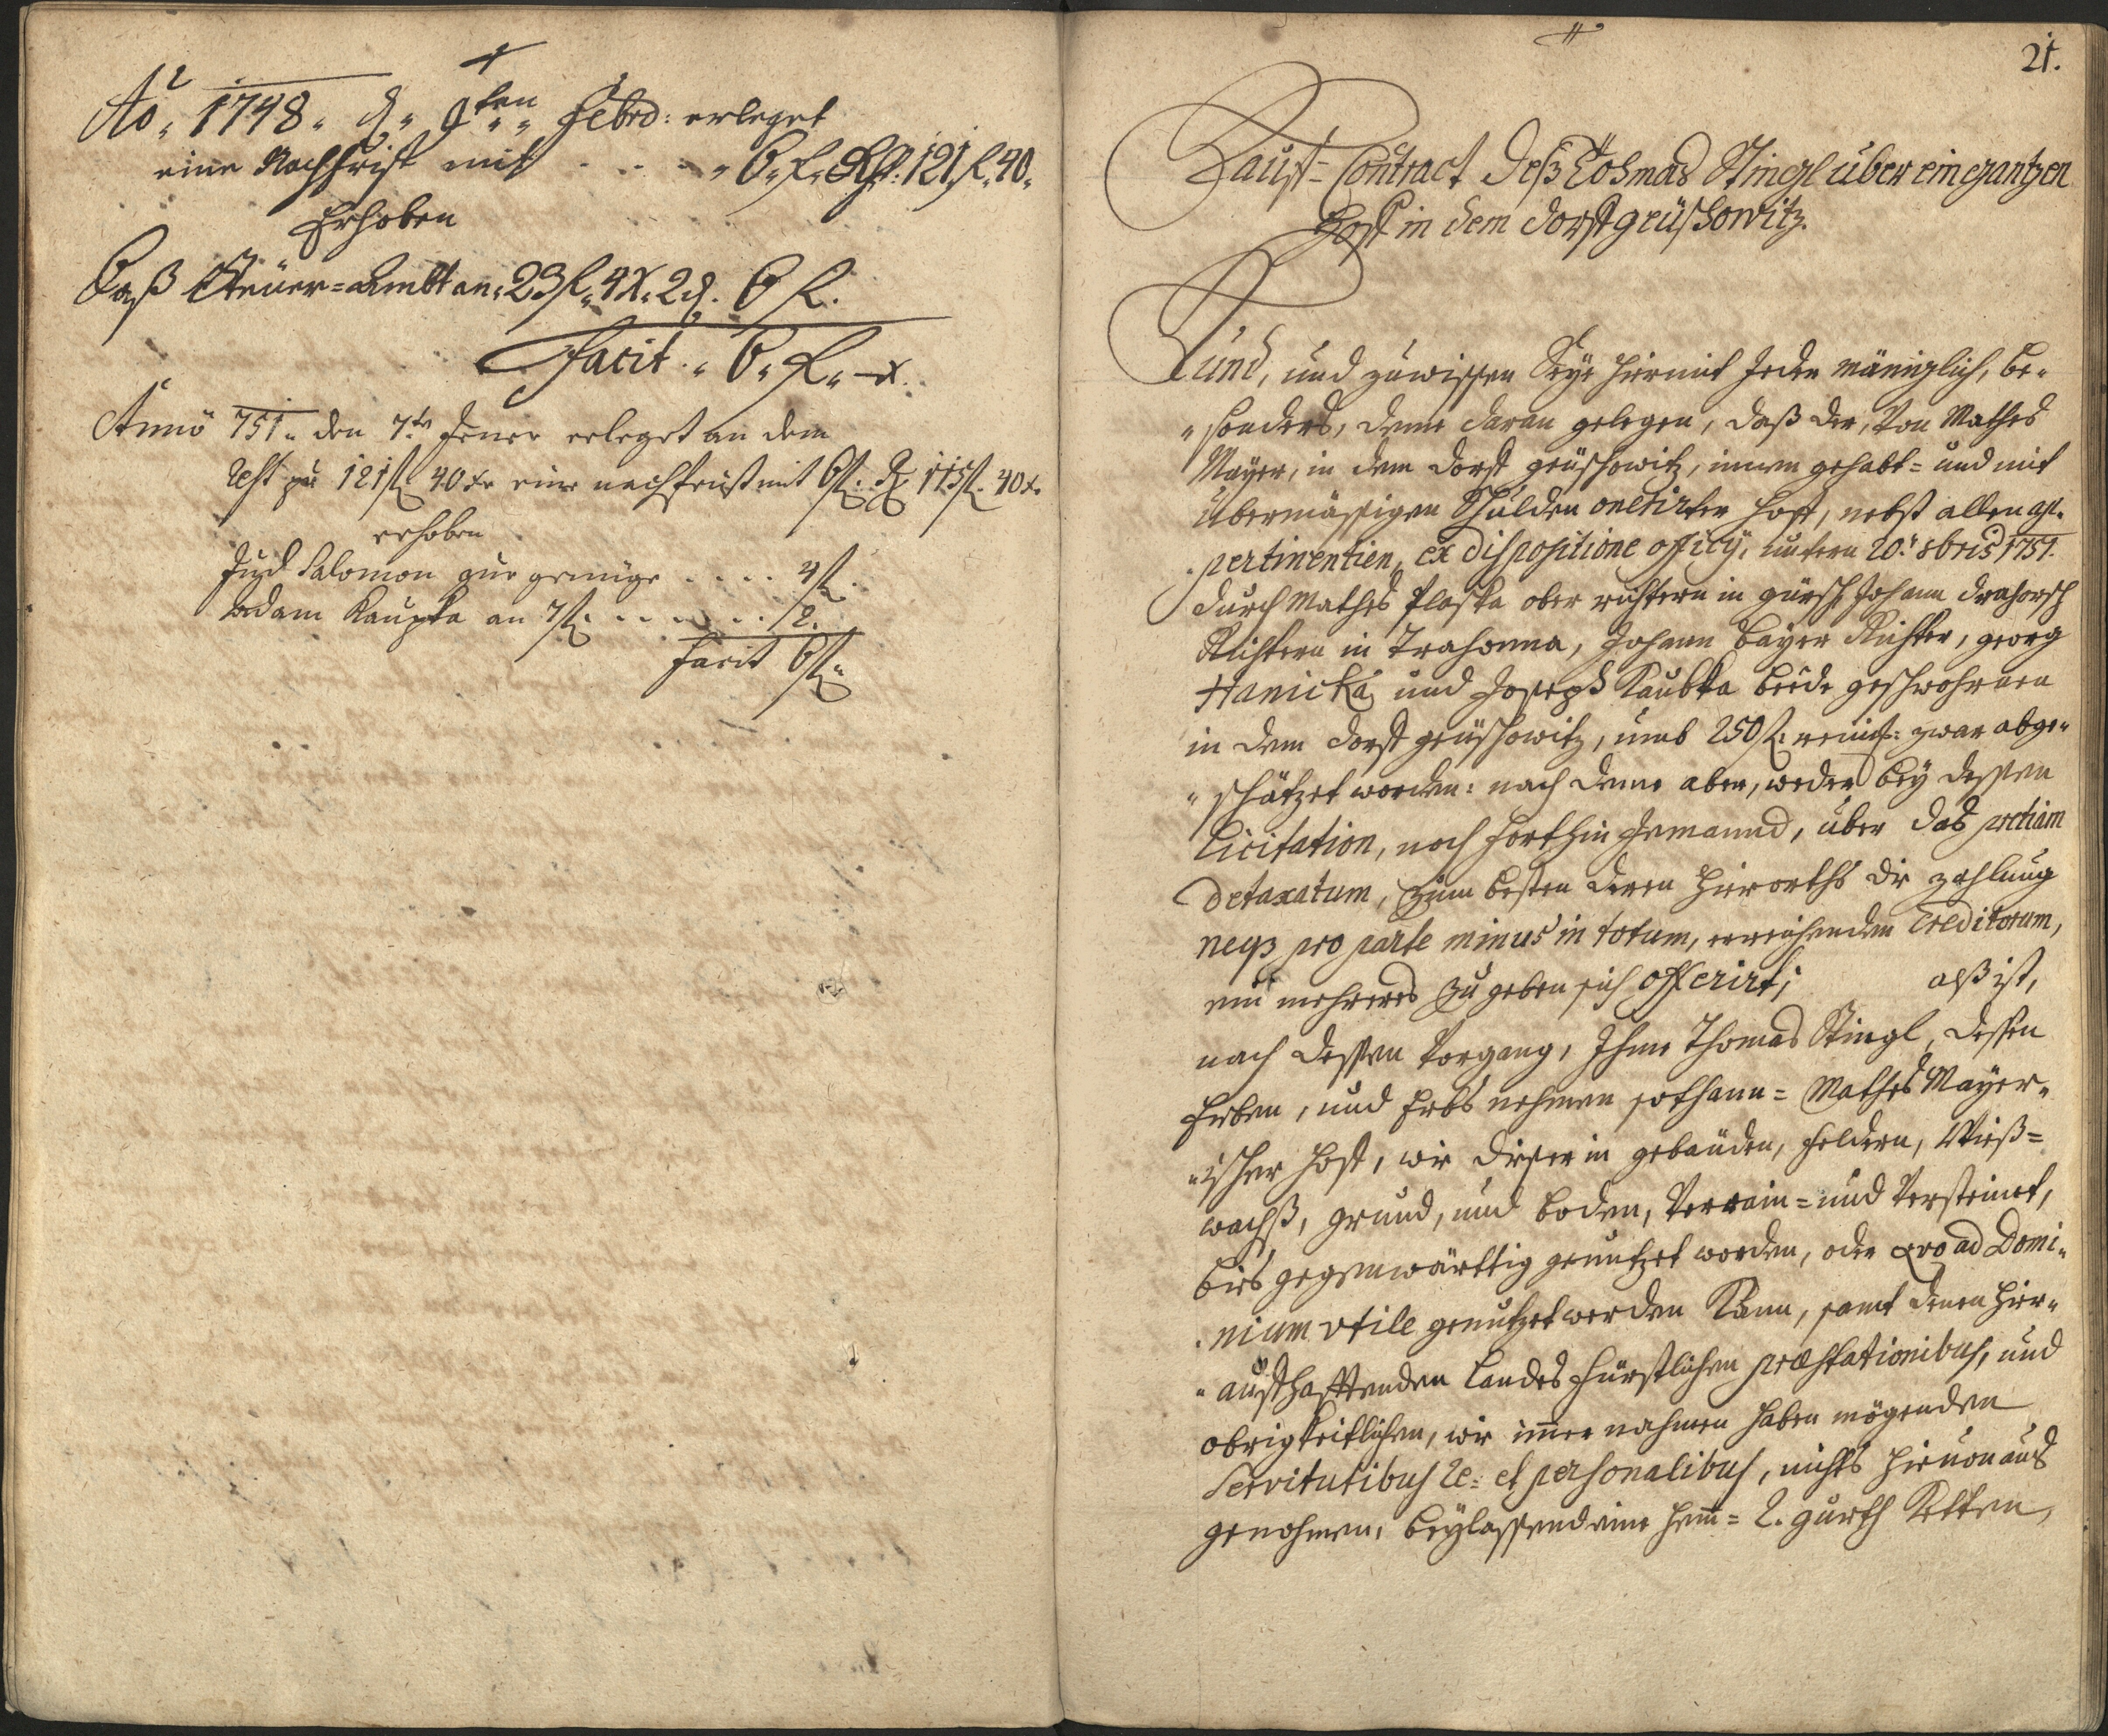 Ao 1748. d. 9ten Febrd: erleget
eine Nachfrist mit . . . . 6. f. Rst. 121. f. 40.
Erhoben
Daß Steüer=Ambt an 23 f. 4 x. 2 d. 6 f.
Facit . 6. f. – x.
Anno 751. den 7.te Jener erleget an dem
Rest zu 121 f 40 xr eine nachfrist mit 6 f. R. 115 f. 40 x.
erhoben
Jud Salomon zur genüge . . . . 4 f.
Adam Kaupka an 7 f. . . . . . . 2.
Facit 6 f.
21.
Kauff=Contract deß Thomas Stingl über ein gantzen
Hoff in dem Dorff grüschowitz.
Kund, und zuwissen seye hiermit jeder männiglich, be„
„sonders, deme daran gelegen, daß der, von Mathes
Mayer, in dem Dorff grüschowitz, innen gehabt= und mit
übermässigen Schulden onerirter Hoff, nebst allen ap„
„pertinentien, ex dispositione officÿ, untern 20.t 8bris 1751.
durch Mathes Plaska ober richtern in gürsch Johann Drahorsch
Richtern in Trahonna, Johann Bayer Richter, georg
Hanicka und Joseph Kaubka beede geschwohrnen
in dem Dorff grüschowitz, umb 250 f. reinis: zwar abge„
„schätzet worden: nach deme aber, weder bey dessen
Licitation, noch forthin jemannd, über das pretium
detaxatum, zum besten deren hierorths die zahlung
neqz pro parte minus in totum, erreichenden Creditorum,
ein mehreres zu geben sich offerirt; alß ist,
nach dessen Vorgang, Ihme Thomas Stingl, dessen
Erben, und Erbs nehmen sothann= Mathes Mayer„
„ischer Hoff, wie dieser in gebäuden, feldern, Wieß=
wachß, grund, und boden, Verrain= und Versteinet,
bies gegenwärttig genutzet worden, oder qvo ad Domi„
„nium utile genutzet werden kann, samt denen hier„
„aufhafftenden Landes fürstlichen præstationibus, und
obrigkeitlichen, wie imer nahmen haben mögenden
Servitutibus re: et personalibus, nichts hiervon auß
genohmen, beylassend eine hem= 2. gurth Ketten,